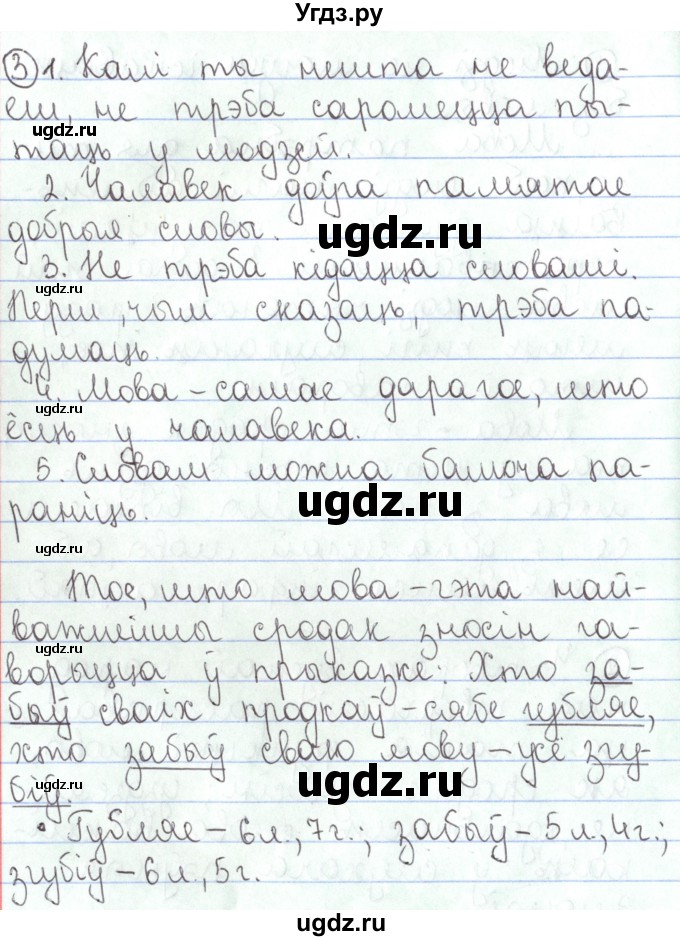 Угдз.ру
③ 1. Калі ты нешта не веда-
еш, не трэба саромецца пы-
ugdz.ru
таць у людзей.
2. Чалавек доўга памятае
добрыя словы.
ugdz.ru
ugdz.ru
3. Не трэба кідацца словамі.
Перш, чым сказаць, трэба па-
думаць.
ugdz.ru
4. Мова – самае дарагое, што
ёсць у чалавека.
5. Словам можна балюча па-
ugdz.ru
раніць.
ugdz.ru
Тое, што мова – гэта най-
важнейшы сродак зносін га-
ugdz.ru
ворыцца ў прыказке: Хто за-
быў сваіх продкаў – сябе губляе,
ugdz.ru
хто забыў сваю мову – усё згу-
ugdz.ru
біў.
• Губляе – 6 л., 7 г.; забыў – 5 л., 4 г.;
ugdz.ru
згубіў – 6 л., 5 г.
ugdz.ru